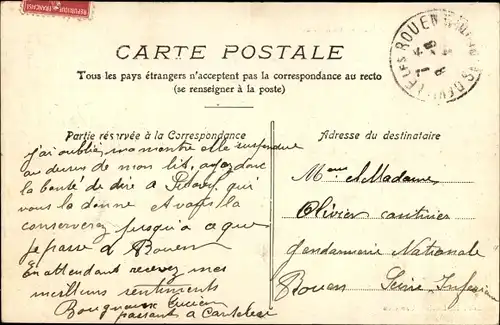 REPUBLIQUE FRANÇAISE
ROUEN
CARTE POSTALE
Tous les pays étrangers n'acceptent pas la correspondance au recto
(se renseigner à la poste)
Partie réservée à la Correspondance
j'ai oublié ma montre elle suspendue
au dessus de mon lit, ayez donc
la bonté de dire a qui
vous la donne la
conserverez jusqu'a ce que
je passe a Rouen
En attendant recevez mes
meilleurs sentiments
Lucien
passant a
Adresse du destinataire
Madame
Olivier cantinier
Gendarmerie Nationale
Rouen Seine Inférieure